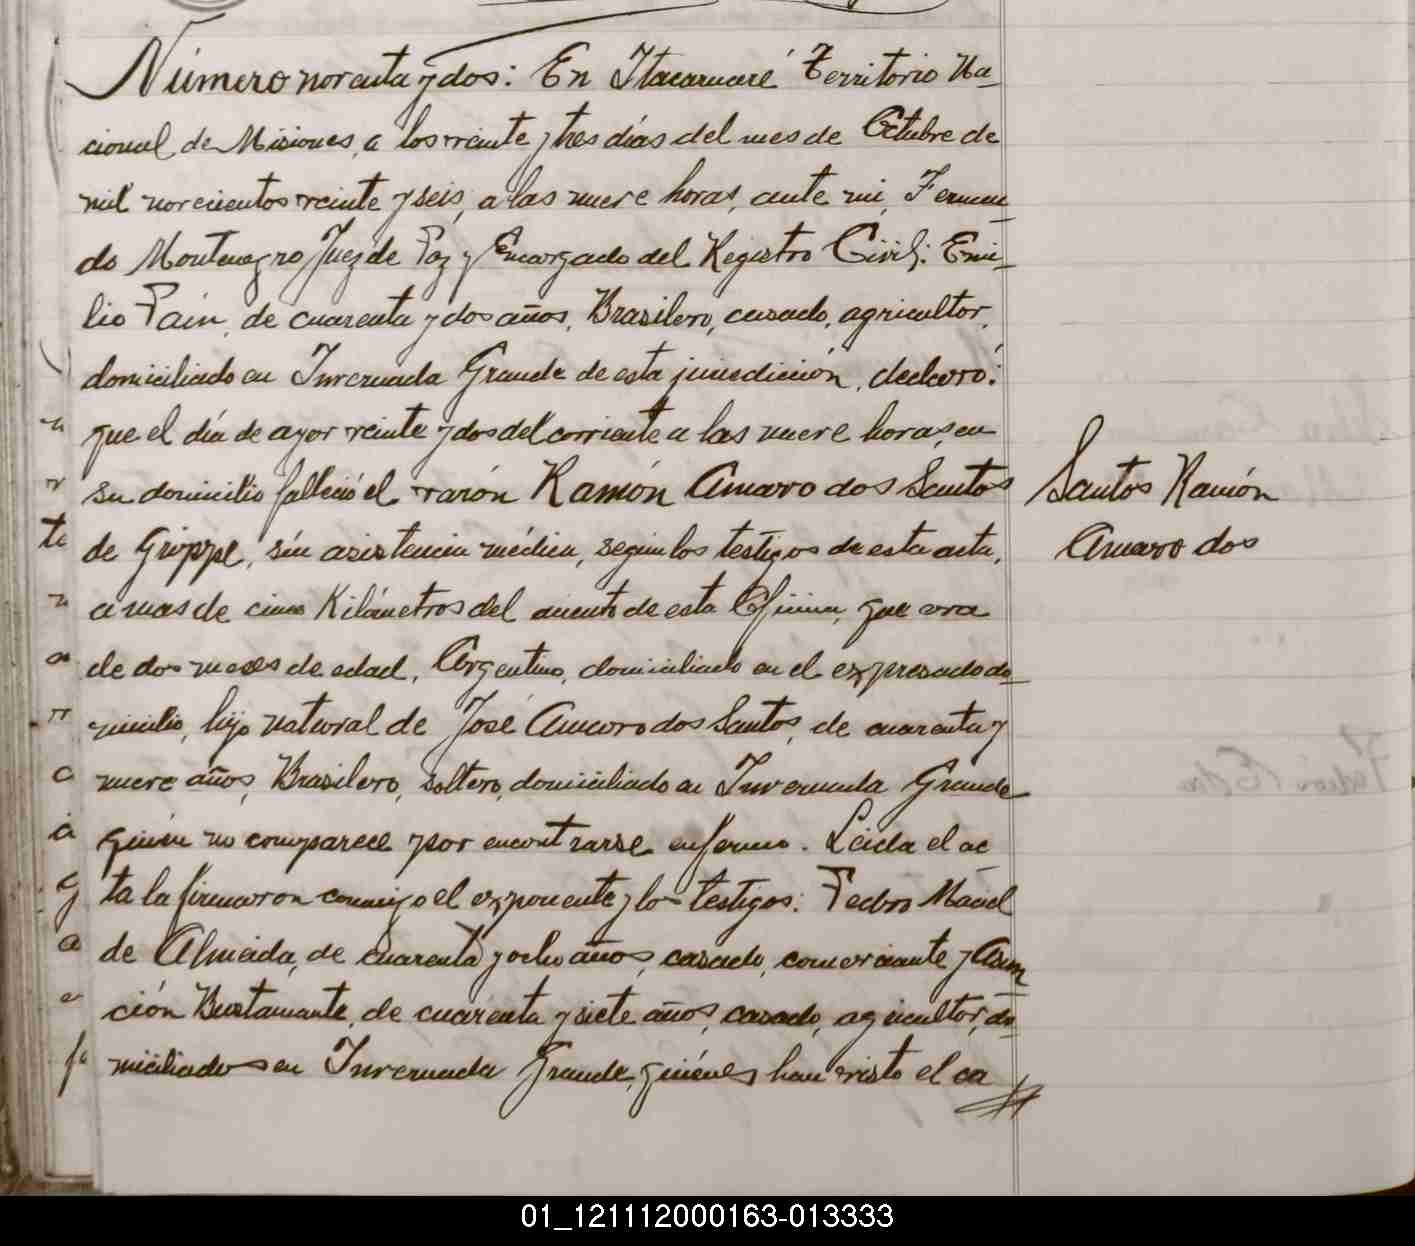 Número noventa y dos: En Itacaruaré Territorio Na-
cional de Misiones, a los veinte y tres días del mes de Octubre de
mil novecientos veinte y seis, a las nueve horas, ante mi, Fernan-
do Montenegro Juez de Paz y Encargado del Registro Civil: Emi-
lio Pain, de cuarenta y dos años, Brasilero, casado, agricultor,
domiciliado en Invernada Grande de esta jurisdicción, declaró:
que el día de ayer veinte y dos del corriente a las nueve horas, en
su domicilio falleció el varón Ramón Amaro dos Santos
de Grippe, sin asistencia médica, segun los testigos de esta acta,
a mas de cinco Kilómetros del asiento de esta Oficina, que era
de dos meses de edad, Argentino, domiciliado en el expresado do-
micilio, hijo natural de José Amaro dos Santos, de cuarenta y
nueve años, Brasilero, soltero, domiciliado en Invernada Grande
quien no comparece por encontrarse enfermo. Leida el ac
ta la firmaron conmigo el exponente y los testigos: Pedro Maciel
de Almeida, de cuarenta y ocho años, casado, comerciante y Asun
ción Bustamante, de cuarenta y siete años, casado, agricultor, do-
miciliados en Invernada Grande, quiénes han visto el ca
Santos Ramón
Amaro dos
01_121112000163-013333